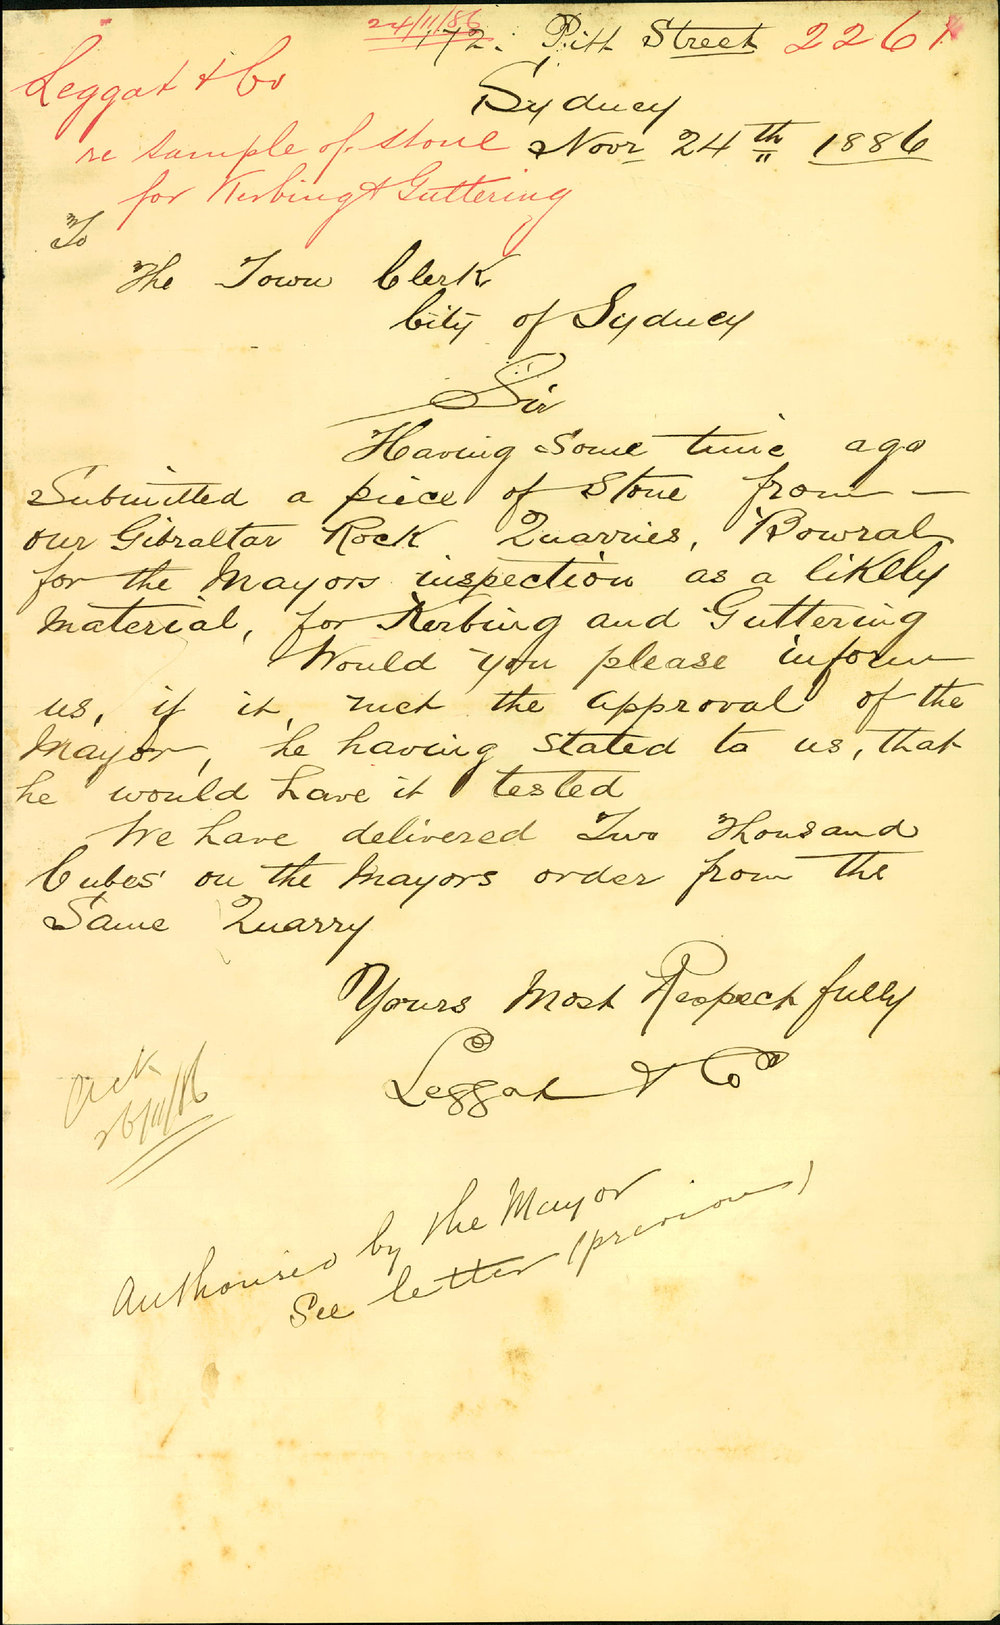 24/11/86
172. Pitt Street 2261
Leggat & Co
Sydney
re sample of stone Novr 24th 1886
for Kerbing & Guttering
To
The Town Clerk
City of Sydney
Sir
Having Some time ago
Submitted a piece of Stone from —
our Gibraltar Rock Quarries, Bowral
for the Mayors inspection as a likely
Material, for Kerbing and Guttering
Would you please inform
us, if it, met the approval of the
Mayor, he having stated to us, that
he would have it tested
We have delivered Two Thousand
Cubes on the Mayors order from the
Same Quarry
Yours Most Respectfully
Leggat & Co
Ack
26/11/86
Authorised by the Mayor
See letter (previous)